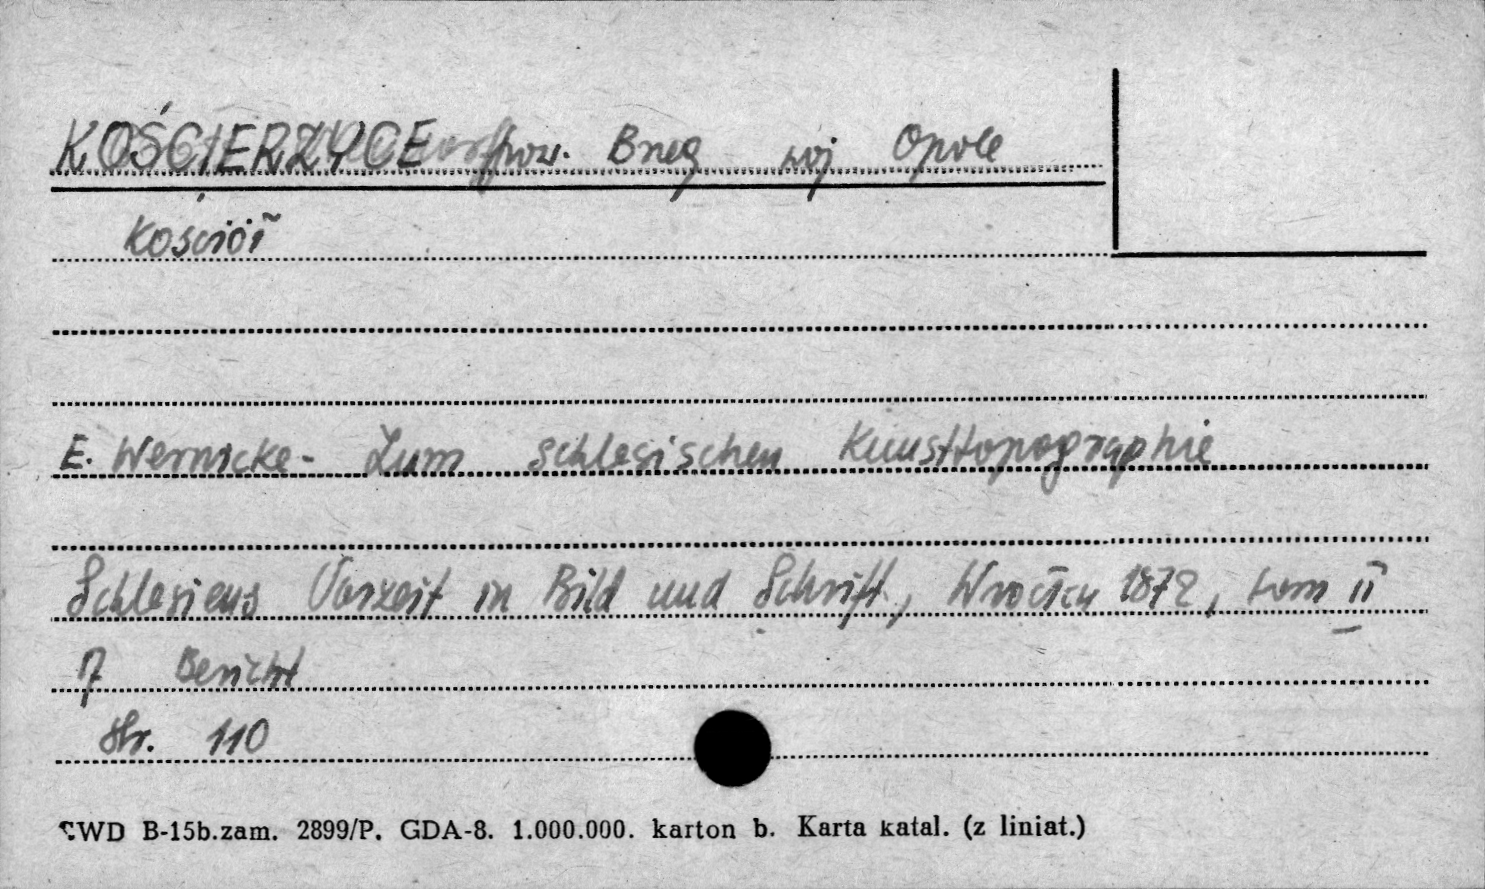 KOŚCIERZYCE pow. Brzeg woj Opole
Kościół
E. Wernicke - Zum schlesischen Kunsttopographie
Schlesiens Vorzeit in Bild und Schrift, Wrocław 1872, tom II
17 Bericht
Str. 110
CWD B-15b.zam. 2899/P. GDA-8. 1.000.000. karton b. Karta katal. (z liniat.)